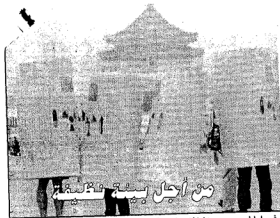 من أجل بيئة نظيفة